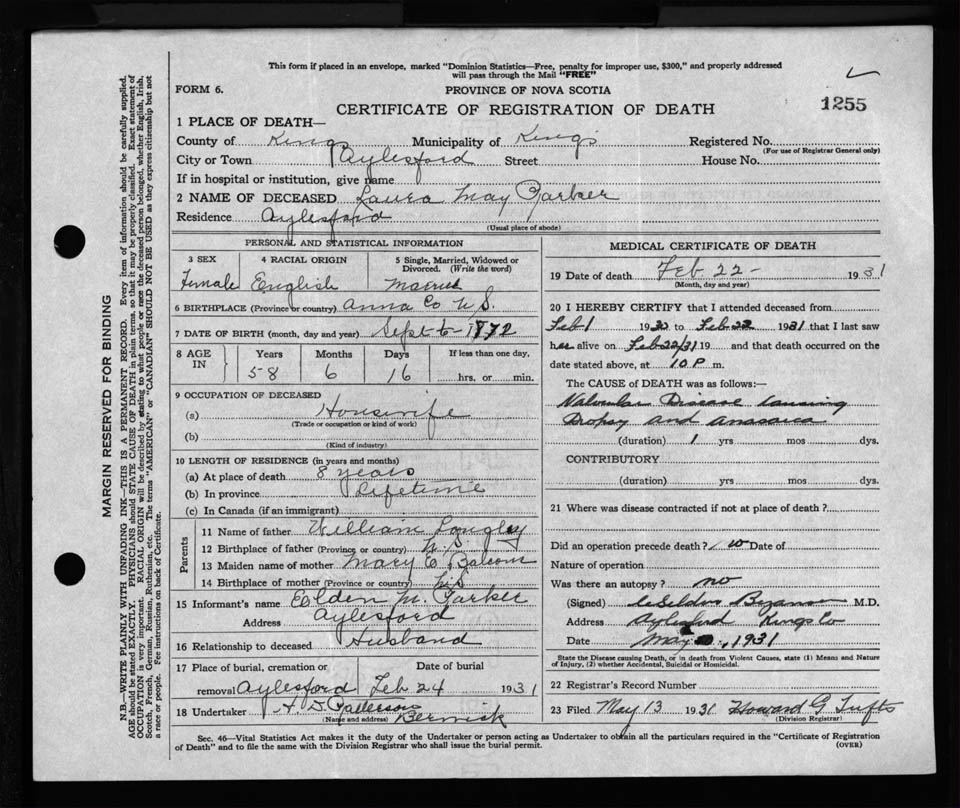 This form if placed in an envelope, marked "Dominion Statistics—Free, penalty for improper use, $300," and properly addressed
will pass through the Mail "FREE"
FORM 6.
PROVINCE OF NOVA SCOTIA
CERTIFICATE OF REGISTRATION OF DEATH
1255
1 PLACE OF DEATH—
County of Kings Municipality of Kings Registered No.
(For use of Registrar General only)
City or Town Aylesford Street House No.
If in hospital or institution, give name
2 NAME OF DECEASED Laura May Parker
Residence Aylesford
(Usual place of abode)
PERSONAL AND STATISTICAL INFORMATION
3 SEX 4 RACIAL ORIGIN 5 Single, Married, Widowed or
Divorced. (Write the word)
Female English Married
6 BIRTHPLACE (Province or country) Anna Co N S.
7 DATE OF BIRTH (month, day and year) Sept 6 - 1872
8 AGE IN Years Months Days If less than one day,
58 6 16 hrs. or min.
9 OCCUPATION OF DECEASED
(a) Housewife
(Trade or occupation or kind of work)
(b)
(Kind of industry)
10 LENGTH OF RESIDENCE (in years and months)
(a) At place of death 8 years
(b) In province Lifetime
(c) In Canada (if an immigrant)
Parents
11 Name of father William Longley
12 Birthplace of father (Province or country) N.S
13 Maiden name of mother Mary E. Balcom
14 Birthplace of mother (Province or country) N.S
15 Informant's name Elden M. Parker
Address Aylesford
16 Relationship to deceased Husband
17 Place of burial, cremation or Date of burial
removal Aylesford Feb 24 1931
18 Undertaker A. D. Patterson
(Name and address) Berwick
MEDICAL CERTIFICATE OF DEATH
19 Date of death Feb 22 - 1931
(Month, day and year)
20 I HEREBY CERTIFY that I attended deceased from
Feb 1 1930 to Feb 22 1931 that I last saw
her alive on Feb 22/31 19 and that death occurred on the
date stated above, at 10 P m.
The CAUSE OF DEATH was as follows:—
Valvular Disease causing
Dropsy and anasarca
(duration) 1 yrs mos dys.
CONTRIBUTORY
(duration) yrs mos dys.
21 Where was disease contracted if not at place of death?
Did an operation precede death? no Date of
Nature of operation
Was there an autopsy? no
(Signed) M.D.
Address Aylesford Kings Co
Date May 1931
State the Disease causing Death, or in death from Violent Causes, state (1) Means and Nature
of Injury, (2) whether Accidental, Suicidal or Homicidal.
22 Registrar's Record Number
23 Filed May 13 1931 Howard G Tufts
(Division Registrar)
Sec. 46—Vital Statistics Act makes it the duty of the Undertaker or person acting as Undertaker to obtain all the particulars required in the "Certificate of Registration
of Death" and to file the same with the Division Registrar who shall issue the burial permit.
(OVER)
MARGIN RESERVED FOR BINDING
N.B.—WRITE PLAINLY WITH UNFADING INK—THIS IS A PERMANENT RECORD. Every item of information should be carefully supplied.
AGE should be stated EXACTLY. PHYSICIANS should STATE CAUSE OF DEATH in plain terms, so that it may be properly classified. Exact statement of
OCCUPATION is very important. RACIAL ORIGIN will be described by stating to what people or race the deceased person belonged, whether English, Irish,
Scotch, French, German, Russian, Ruthenian, etc. The terms "AMERICAN" or "CANADIAN" SHOULD NOT BE USED as they express citizenship but not
a race or people. Fee instructions on back of Certificate.